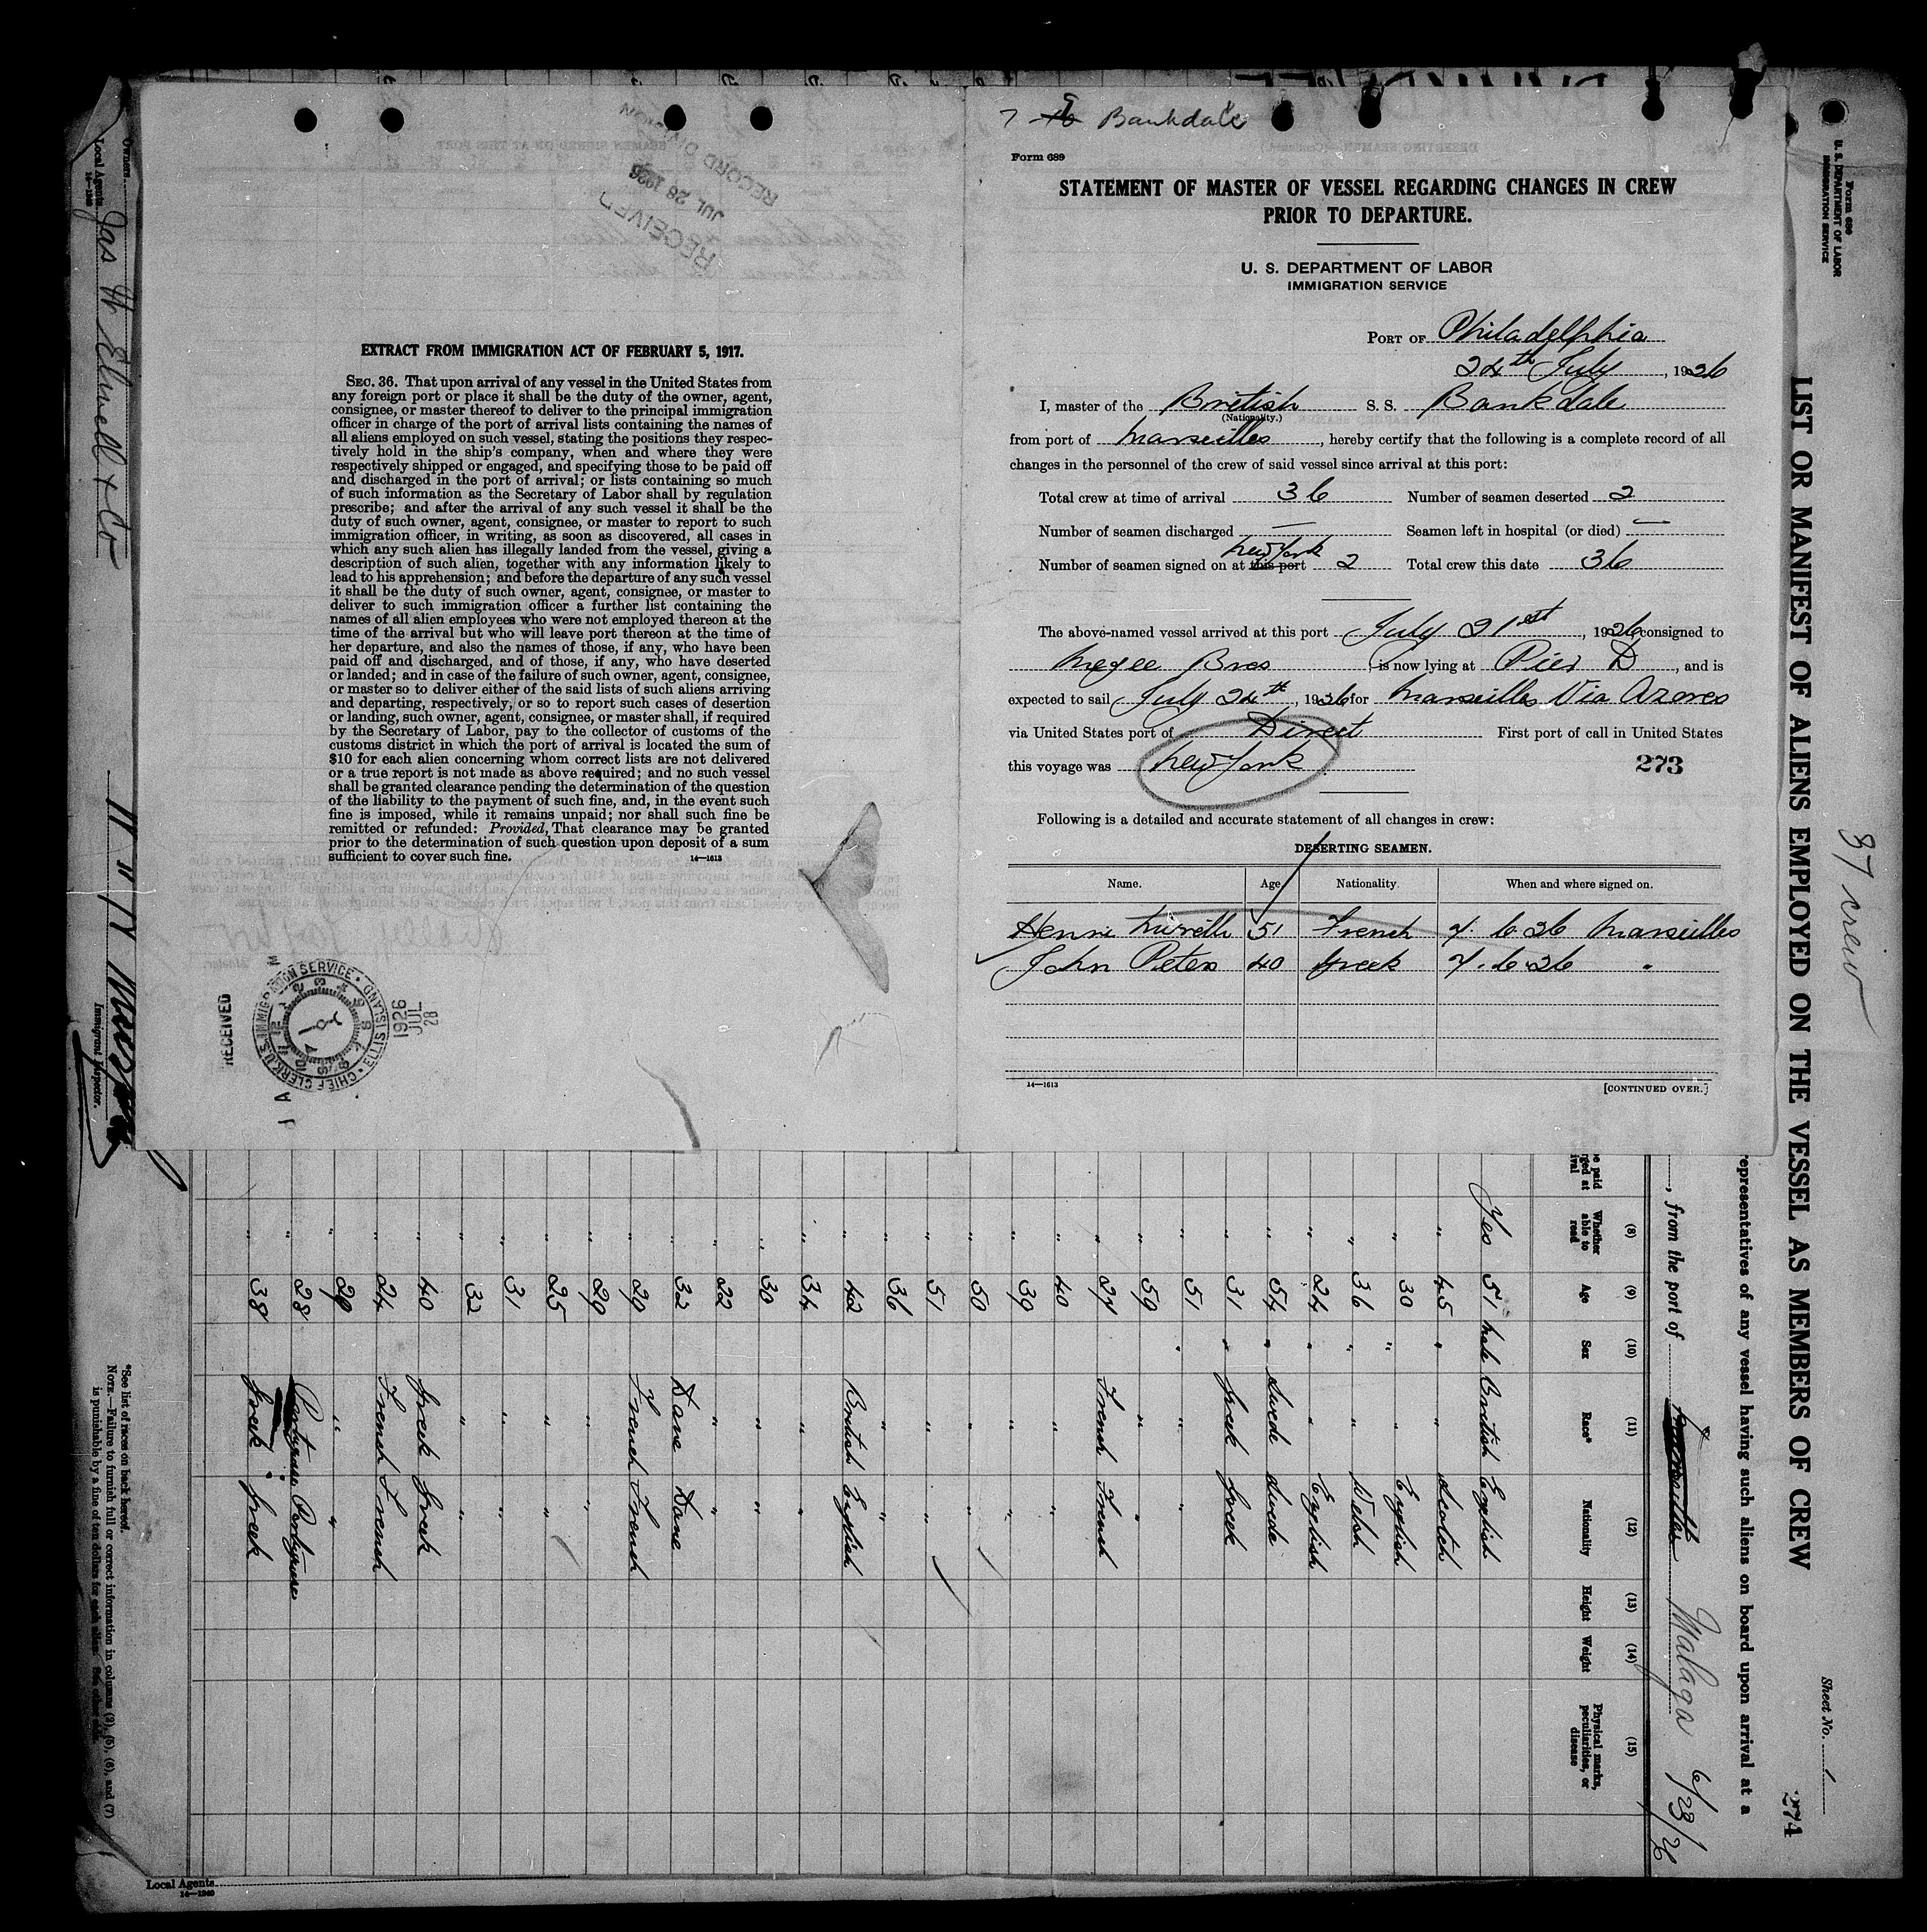 7 Bankdale
Form 689
STATEMENT OF MASTER OF VESSEL REGARDING CHANGES IN CREW
PRIOR TO DEPARTURE.
U. S. DEPARTMENT OF LABOR
IMMIGRATION SERVICE
PORT OF Philadelphia
24th July, 1926
I, master of the British S. S. Bankdale
(Nationality.)
from port of Marseilles, hereby certify that the following is a complete record of all
changes in the personnel of the crew of said vessel since arrival at this port:
Total crew at time of arrival 36 Number of seamen deserted 2
Number of seamen discharged — Seamen left in hospital (or died) —
New York
Number of seamen signed on at this port 2 Total crew this date 36
The above-named vessel arrived at this port July 21st, 1926 consigned to
Megee Bros is now lying at Pier D, and is
expected to sail July 24th, 1926 for Marseilles Via Azores
via United States port of Direct First port of call in United States
this voyage was New York
273
Following is a detailed and accurate statement of all changes in crew:
DESERTING SEAMEN.
Name. Age. Nationality. When and where signed on.
Henri 51 French 7.6.26 Marseilles
John Peters 40 Greek 7.6.26 "
14—1613
[CONTINUED OVER.]
RECORD DIVISION
JUL 28 1926
RECEIVED
EXTRACT FROM IMMIGRATION ACT OF FEBRUARY 5, 1917.
SEC. 36. That upon arrival of any vessel in the United States from
any foreign port or place it shall be the duty of the owner, agent,
consignee, or master thereof to deliver to the principal immigration
officer in charge of the port of arrival lists containing the names of
all aliens employed on such vessel, stating the positions they respec-
tively hold in the ship's company, when and where they were
respectively shipped or engaged, and specifying those to be paid off
and discharged in the port of arrival; or lists containing so much
of such information as the Secretary of Labor shall by regulation
prescribe; and after the arrival of any such vessel it shall be the
duty of such owner, agent, consignee, or master to report to such
immigration officer, in writing, as soon as discovered, all cases in
which any such alien has illegally landed from the vessel, giving a
description of such alien, together with any information likely to
lead to his apprehension; and before the departure of any such vessel
it shall be the duty of such owner, agent, consignee, or master to
deliver to such immigration officer a further list containing the
names of all alien employees who were not employed thereon at the
time of the arrival but who will leave port thereon at the time of
her departure, and also the names of those, if any, who have been
paid off and discharged, and of those, if any, who have deserted
or landed; and in case of the failure of such owner, agent, consignee,
or master so to deliver either of the said lists of such aliens arriving
and departing, respectively, or so to report such cases of desertion
or landing, such owner, agent, consignee, or master shall, if required
by the Secretary of Labor, pay to the collector of customs of the
customs district in which the port of arrival is located the sum of
$10 for each alien concerning whom correct lists are not delivered
or a true report is not made as above required; and no such vessel
shall be granted clearance pending the determination of the question
of the liability to the payment of such fine, and, in the event such
fine is imposed, while it remains unpaid; nor shall such fine be
remitted or refunded: Provided, That clearance may be granted
prior to the determination of such question upon deposit of a sum
sufficient to cover such fine.
14—1613
RECEIVED
U.S. IMMIGRATION SERVICE • ELLIS ISLAND • CHIEF CLERK
1926
JUL
28
Form 689
U. S. DEPARTMENT OF LABOR
IMMIGRATION SERVICE
37 crew
Sheet No. 1
274
LIST OR MANIFEST OF ALIENS EMPLOYED ON THE VESSEL AS MEMBERS OF CREW
epresentatives of any vessel having such aliens on board upon arrival at a
, from the port of Marseilles Malaga 6/23/26
(8) (9) (10) (11) (12) (13) (14) (15)
Whether able to read Age Sex Race* Nationality Height Weight Physical marks, peculiarities, or disease
Yes 51 Male British English
" 45 " " Scotch
" 30 " " English
" 36 " " Welsh
" 24 " " English
" 54 " Swede Swede
" 31 " Greek Greek
" 51 " " "
" 59 " "
" 27 French French
" 40 " "
" 39 " "
" 50 " "
" 51 " "
" 36 " "
" 42 British English
" 34 " "
" 30 " "
" 22 " "
" 32 Dane Dane
" 29 French French
" 29 " "
" 25 " "
" 31 " "
" 32 " "
" 40 Greek Greek
" 24 French French
" 29 " "
" 28 Portuguese Portuguese
" 38 Greek Greek
*See list of races on back hereof.
NOTE.—Failure to furnish full or correct information in columns (2), (5), (6), and (7)
is punishable by a fine of ten dollars for each alien. See other side.
Owners
Local Agents Jas W Elwell & Co
14—1240
Immigrant Inspector.
Local Agents
14—1240